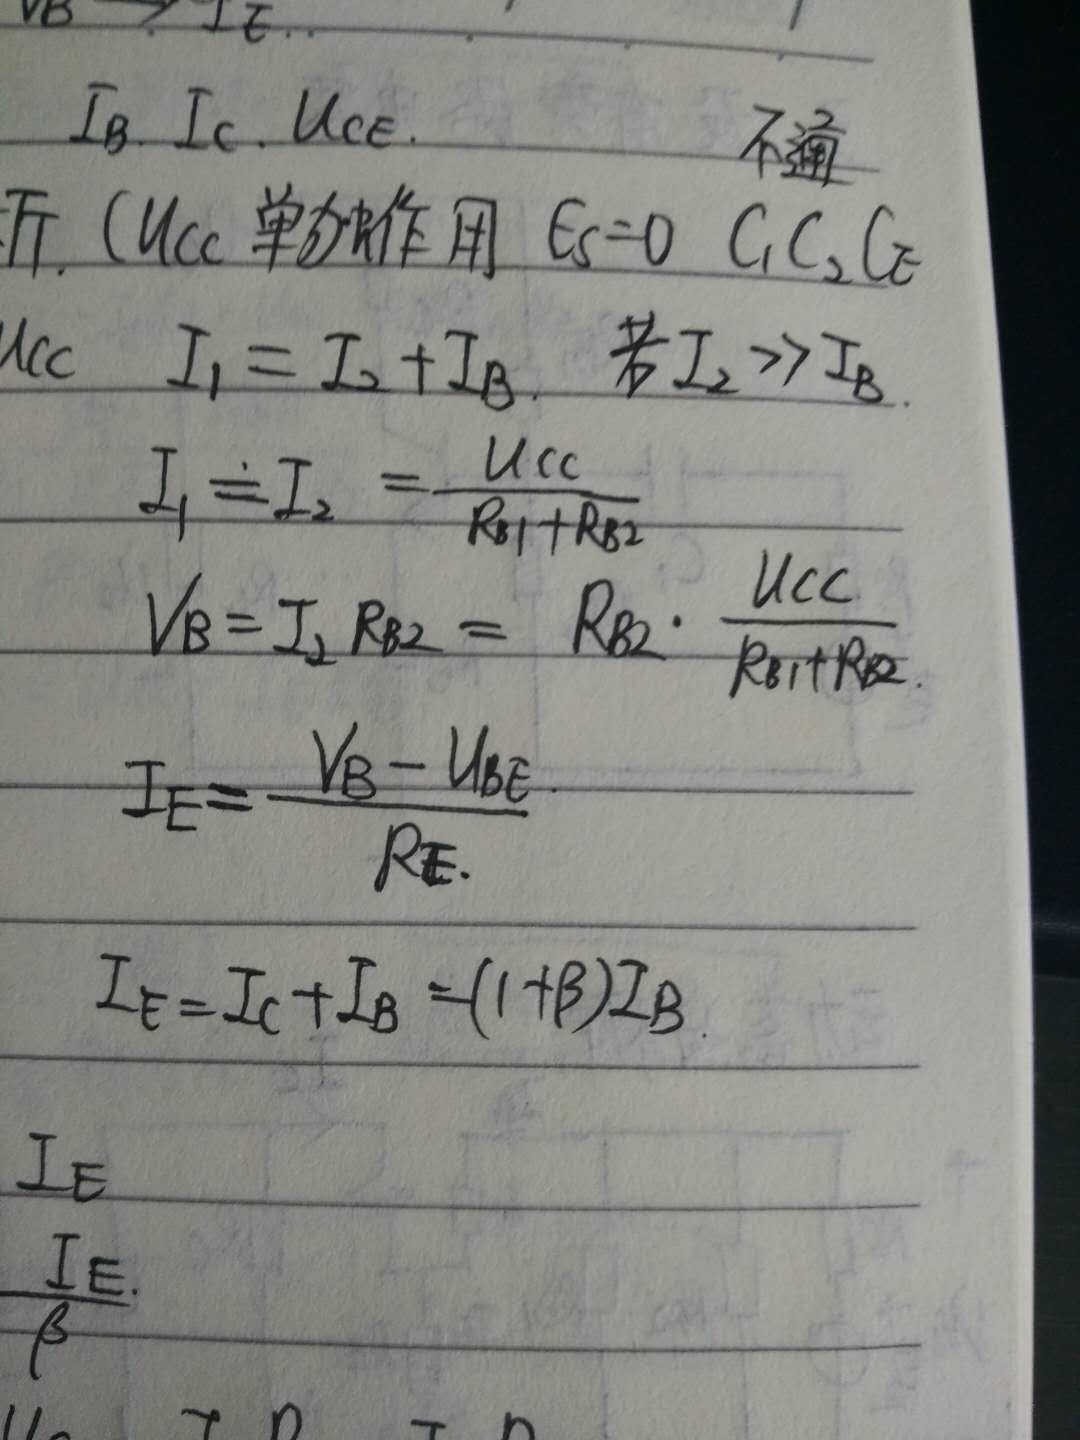 VB → IE..
IB. IC. UCE.
不通
(UCC 单独作用 ES=0 C₁C₂CE
UCC I₁ = I₂ + IB. 若I₂ >> IB.
I₁ ≐ I₂ = UCC / (RB1+RB2)
VB = I₂ RB2 = RB2 · UCC / (RB1+RB2).
IE = (VB - UBE) / RE.
IE = IC + IB = (1+β)IB.
IE
IE. / β